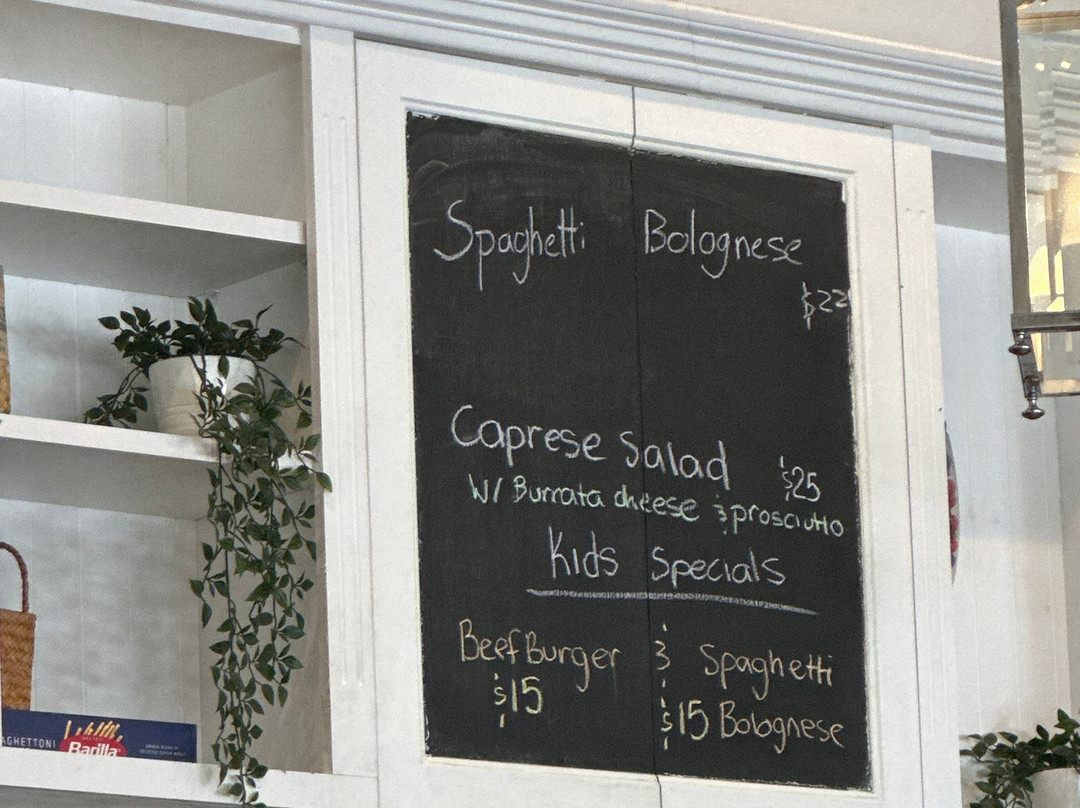 Spaghetti Bolognese
$22
Caprese Salad $25
W/ Burrata cheese & prosciutto
Kids Specials
Beef Burger & Spaghetti
$15 $15 Bolognese
AGHETTONI
Barilla